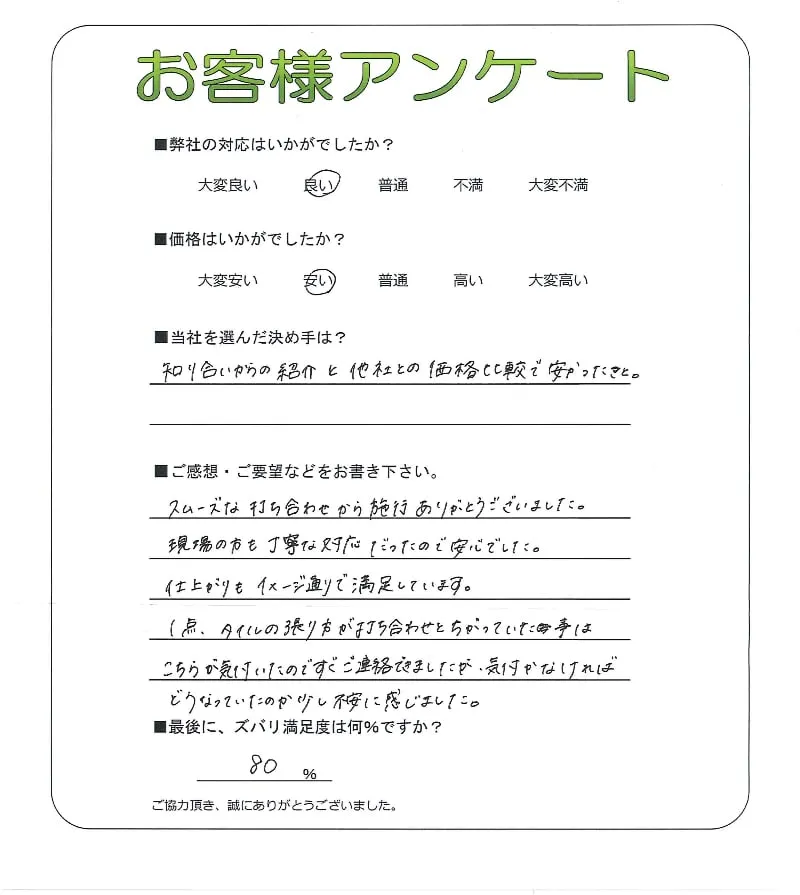 お客様アンケート
■弊社の対応はいかがでしたか？
大変良い 良い 普通 不満 大変不満
■価格はいかがでしたか？
大変安い 安い 普通 高い 大変高い
■当社を選んだ決め手は？
知り合いからの紹介と他社との価格比較で安かったこと。
■ご感想・ご要望などをお書き下さい。
スムーズな打ち合わせから施行ありがとうございました。
現場の方も丁寧な対応だったので安心でした。
仕上がりもイメージ通りで満足しています。
1点、タイルの張り方が打ち合わせとちがっていた事は
こちらが気付いたのですぐご連絡できましたが、気付かなければ
どうなっていたのか少し不安に感じました。
■最後に、ズバリ満足度は何%ですか？
80 %
ご協力頂き、誠にありがとうございました。